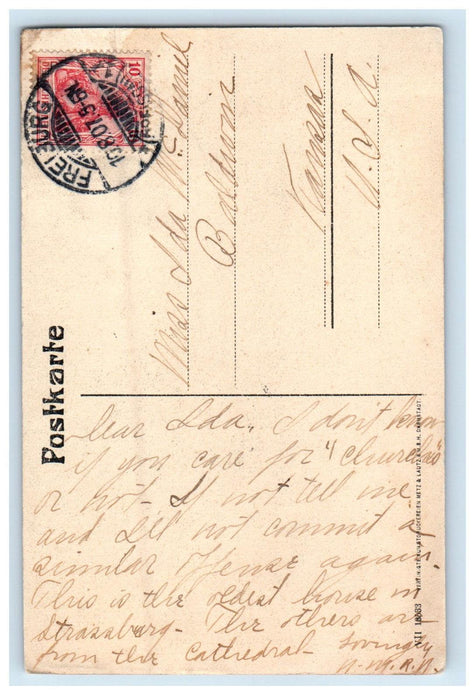 Postkarte
10
FREIBURG
15.8.07.5-6N.
Miss Ida McDaniel
Baldwin
Kansas
U.S.A.
Dear Ida, I don't know
if you care for "churches"
or not - If not tell me
and I'll not commit a
similar offense again.
This is the oldest house in
Strassburg - The others are
from the Cathedral - Lovingly
N. M. R. N.
METZ & LAUTZ G.M.B.H. DARMSTADT.